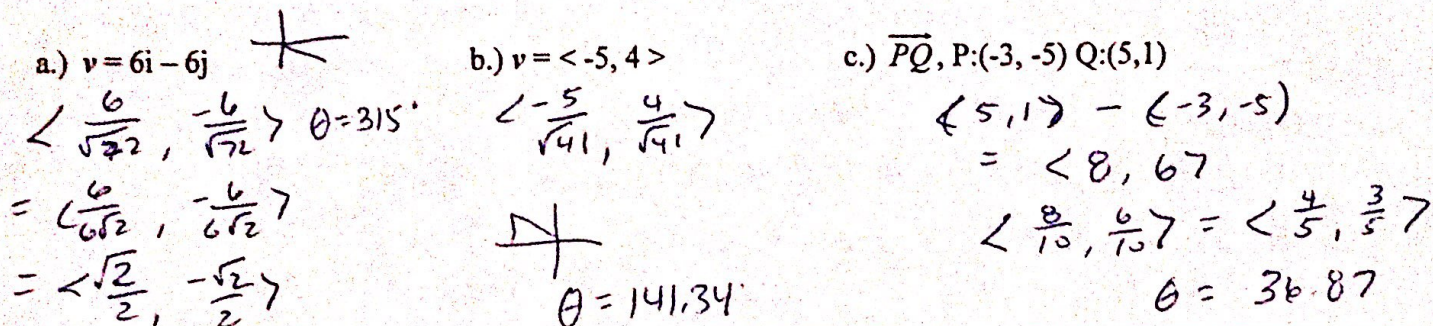 a.) v = 6i – 6j
< 6/√72 , -6/√72 > θ=315°
= < 6/6√2 , -6/6√2 >
= < √2/2 , -√2/2 >
b.) v = < -5, 4 >
< -5/√41 , 4/√41 >
θ = 141.34°
c.) PQ⃗, P:(-3, -5) Q:(5,1)
<5,1> - (-3,-5)
= <8, 6>
< 8/10 , 6/10 > = < 4/5 , 3/5 >
θ = 36.87